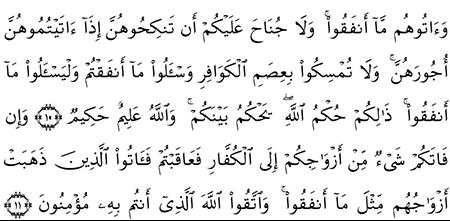 وَءَاتُوهُم مَّآ أَنفَقُوا۟ ۚ وَلَا جُنَاحَ عَلَيْكُمْ أَن تَنكِحُوهُنَّ إِذَآ ءَاتَيْتُمُوهُنَّ
أُجُورَهُنَّ ۚ وَلَا تُمْسِكُوا۟ بِعِصَمِ ٱلْكَوَافِرِ وَسْـَٔلُوا۟ مَآ أَنفَقْتُمْ وَلْيَسْـَٔلُوا۟ مَآ
أَنفَقُوا۟ ۚ ذَٰلِكُمْ حُكْمُ ٱللَّهِ ۖ يَحْكُمُ بَيْنَكُمْ ۚ وَٱللَّهُ عَلِيمٌ حَكِيمٌ ﴿١٠﴾ وَإِن
فَاتَكُمْ شَىْءٌ مِّنْ أَزْوَٰجِكُمْ إِلَى ٱلْكُفَّارِ فَعَاقَبْتُمْ فَـَٔاتُوا۟ ٱلَّذِينَ ذَهَبَتْ
أَزْوَٰجُهُم مِّثْلَ مَآ أَنفَقُوا۟ ۚ وَٱتَّقُوا۟ ٱللَّهَ ٱلَّذِىٓ أَنتُم بِهِۦ مُؤْمِنُونَ ﴿١١﴾